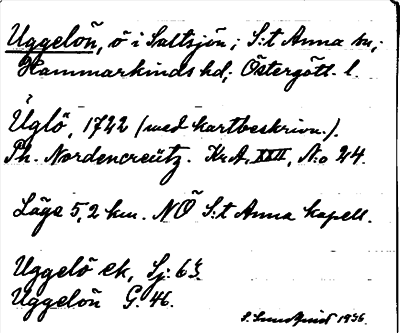 Uggelön, ö i Saltsjön; S:t Anna sn;
Hammarkinds hd; Östergötl. l.
Üglö, 1722 (med kartbeskrivn.).
Ph. Nordencreütz. Kr.A. XXII, N:o 24.
Läge 5,2 km. NÖ S:t Anna kapell.
Uggelö ek, Sj. 63.
Uggelön G. 46.
S. Lundqvist 1936.